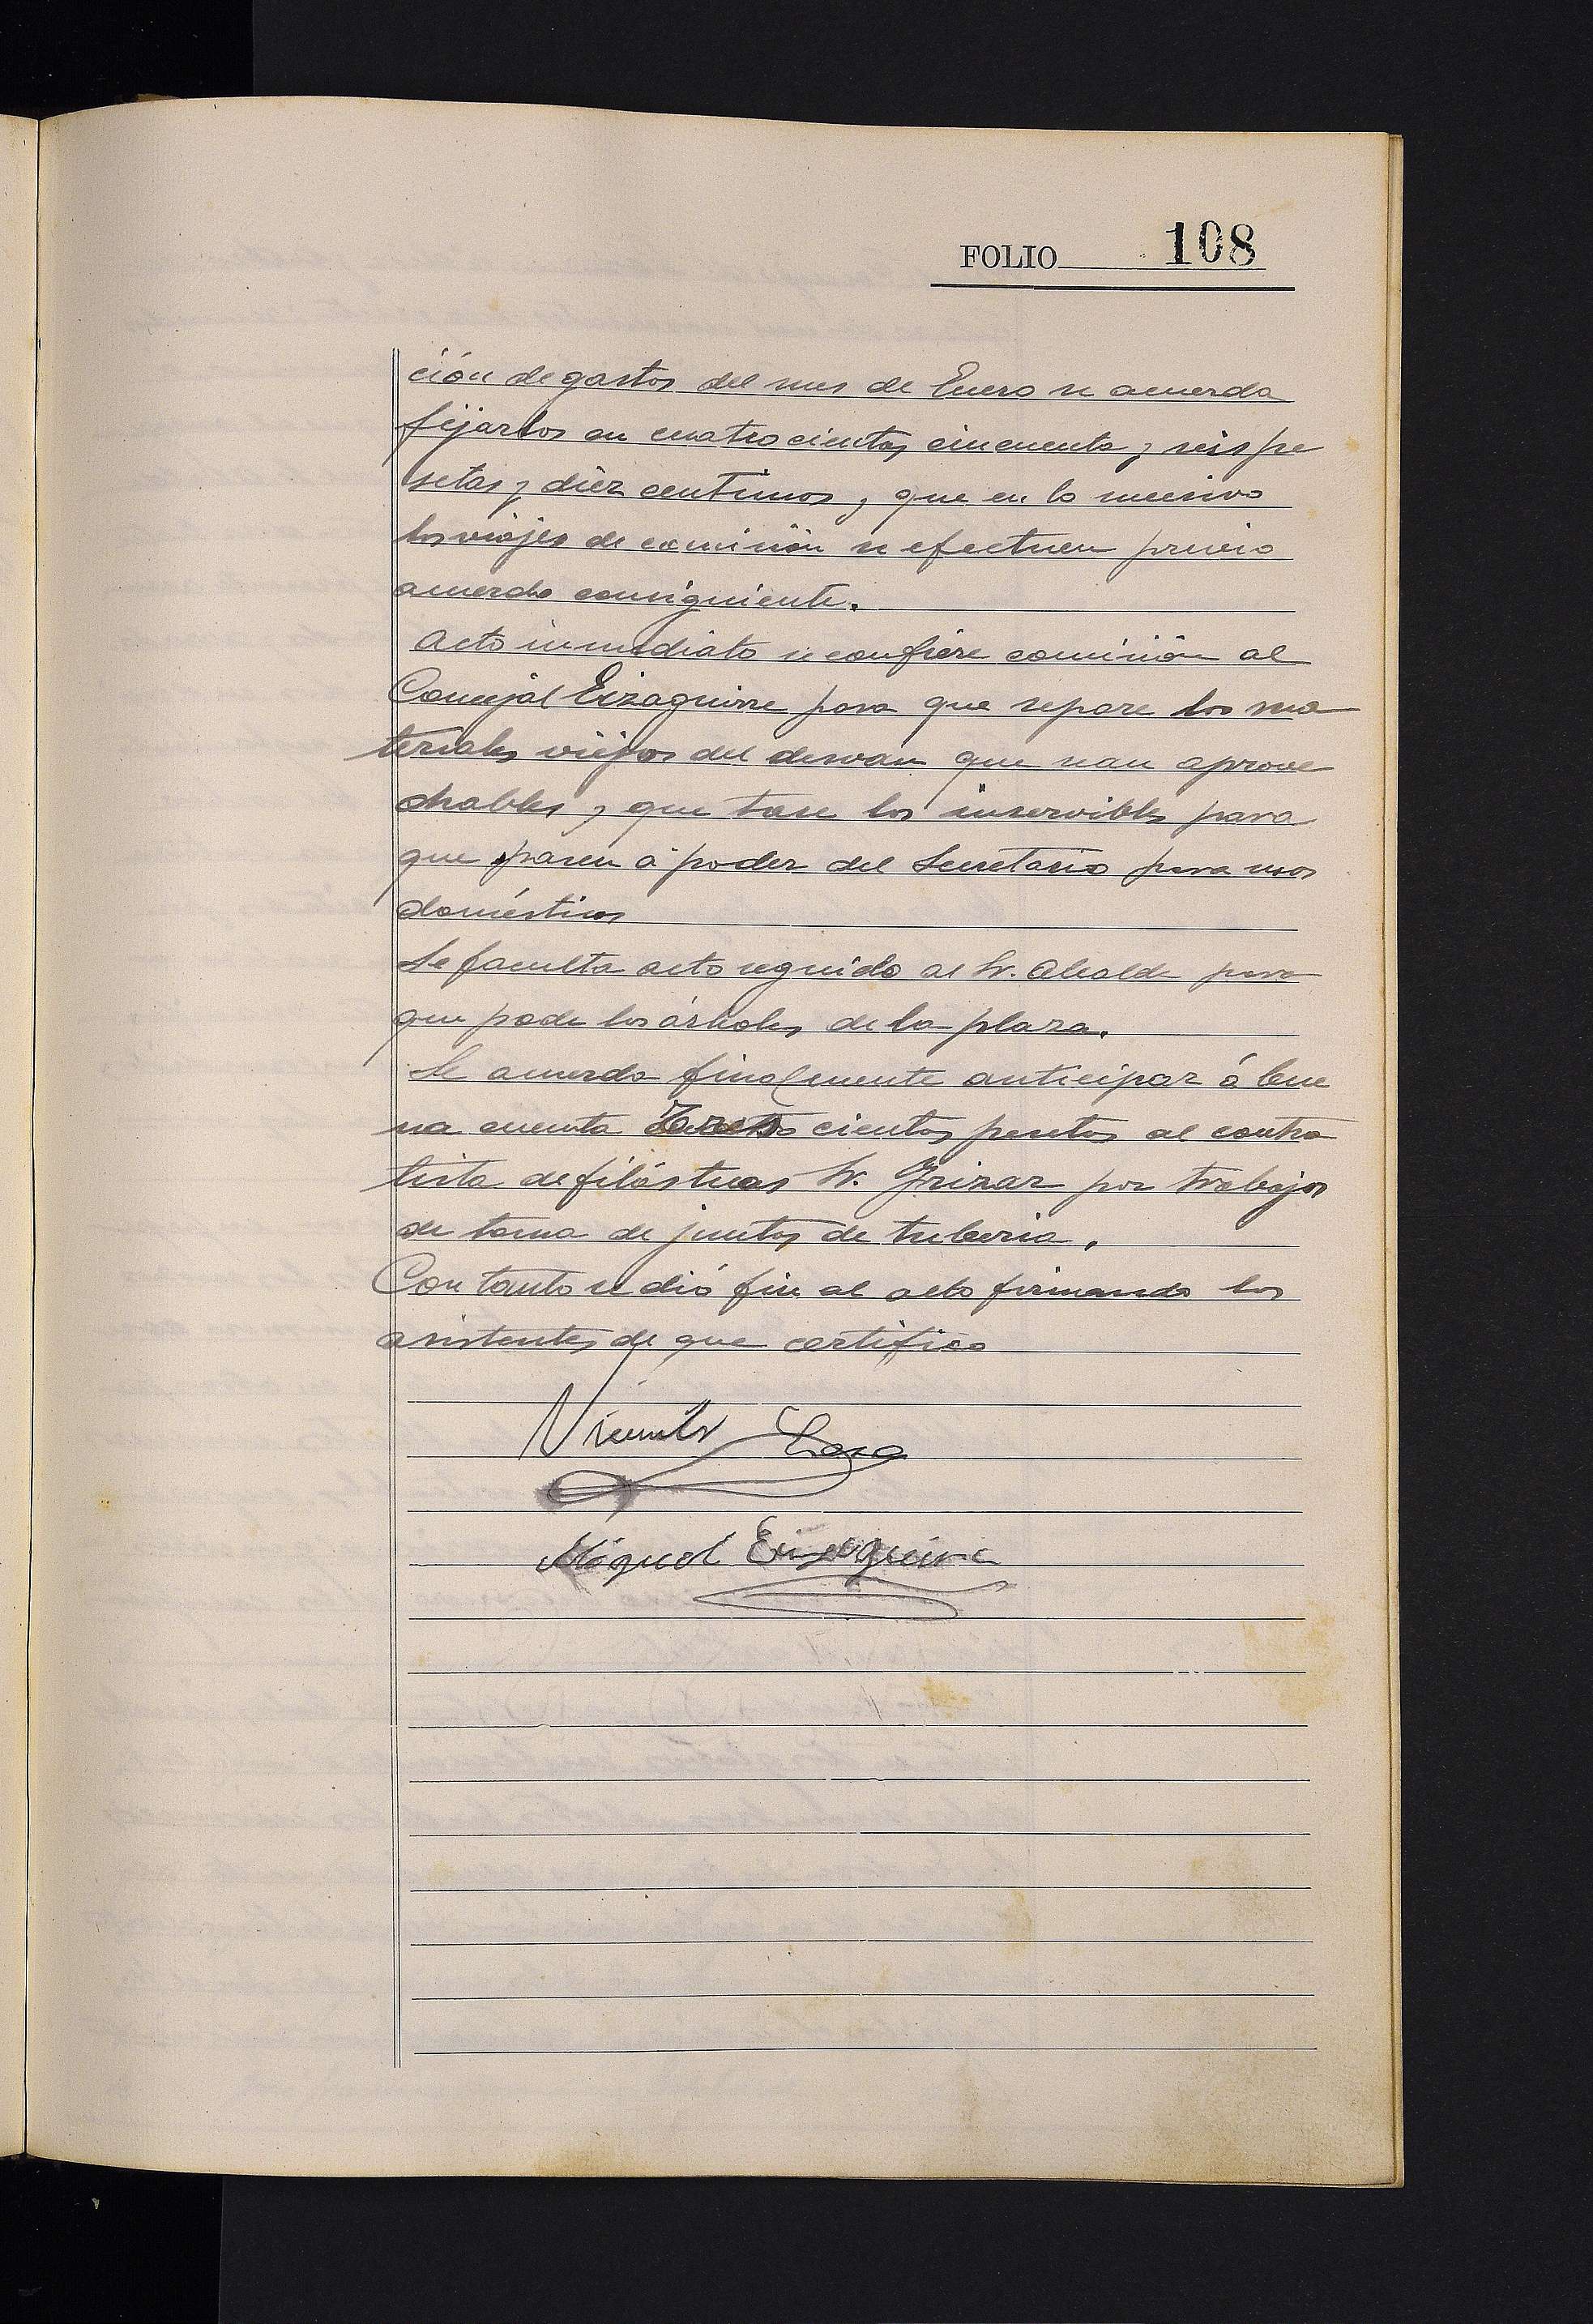 FOLIO 108
ción de gastos del mes de Enero se acuerda
fijarlos en cuatrocientas cincuenta y seis pe
setas y diez centimos y que en lo sucesivo
los viajes de comisión se efectuen previo
acuerdo consiguiente.
Acto inmediato se confiere comisión al
Concejal Eizaguirre para que separe los ma
teriales viejos del desvan que sean aprove
chables y que tase los inservibles para
que pasen á poder del Secretario para usos
domésticos
Se faculta acto seguido al Sr. Alcalde para
que pode los árboles de la plaza.
Se acuerda finalmente anticipar á bue
na cuenta cientas pesetas al contra
tista de filásticas Sr. Grizar por trabajos
de toma de juntas de tuberia.
Con tanto se dió fin al acto firmando los
asistentes de que certifico
Vicente Lasa
Miguel Eizaguirre